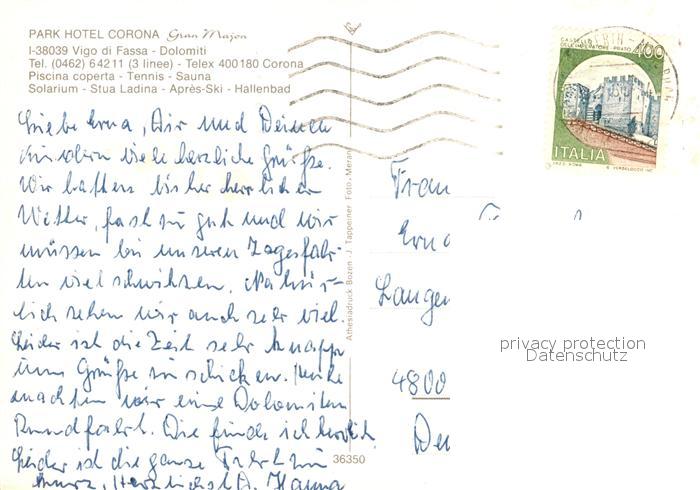 PARK HOTEL CORONA Gran Majon
I-38039 Vigo di Fassa - Dolomiti
Tel. (0462) 64211 (3 linee) - Telex 400180 Corona
Piscina coperta - Tennis - Sauna
Solarium - Stua Ladina - Après-Ski - Hallenbad
Liebe Erna, Dir und Deinen
Kindern viele herzliche Grüße.
Wir hatten bisher herrliches
Wetter, fast zu gut und wir
müssen bei unseren Tagesfahr-
ten viel schwitzen. Natür-
lich sehen wir auch sehr viel.
Leider ist die Zeit sehr knapp
um Grüße zu schicken. Heute
machten wir eine Dolomiten
Rundfahrt. Die finde ich herrlich
Leider ist die ganze Fahrt zu
kurz. Herzlichst D. Hanna
Athesiadruck Bozen - J. Tappeiner Foto - Meran
36350
CASTELLO
DELL'IMPERATORE - PRATO
400
ITALIA
Frau
Erna
Langen
4800
privacy protection
Datenschutz